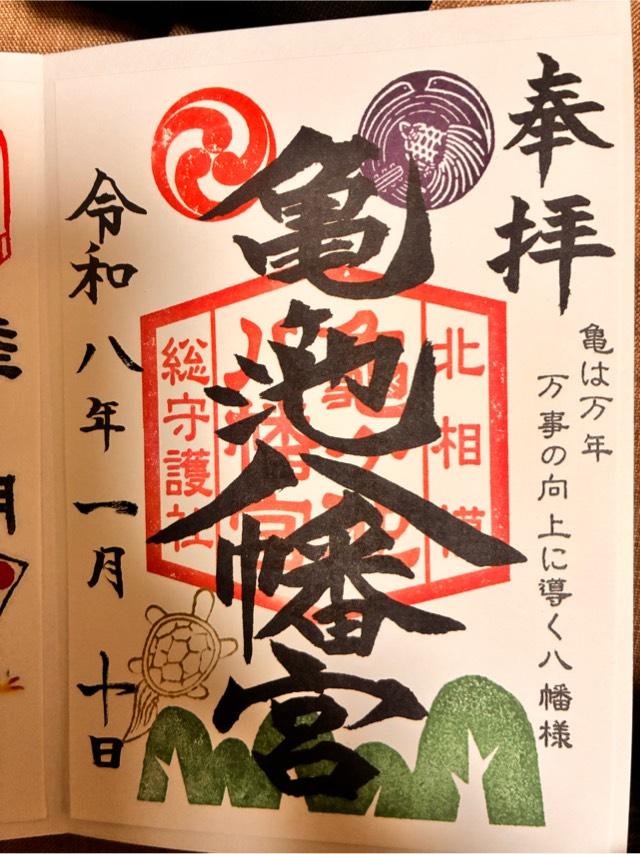 奉拝
亀は万年
万事の向上に導く八幡様
亀池八幡宮
北相模
亀ヶ池
八幡宮
総守護社
令和八年一月十日
月